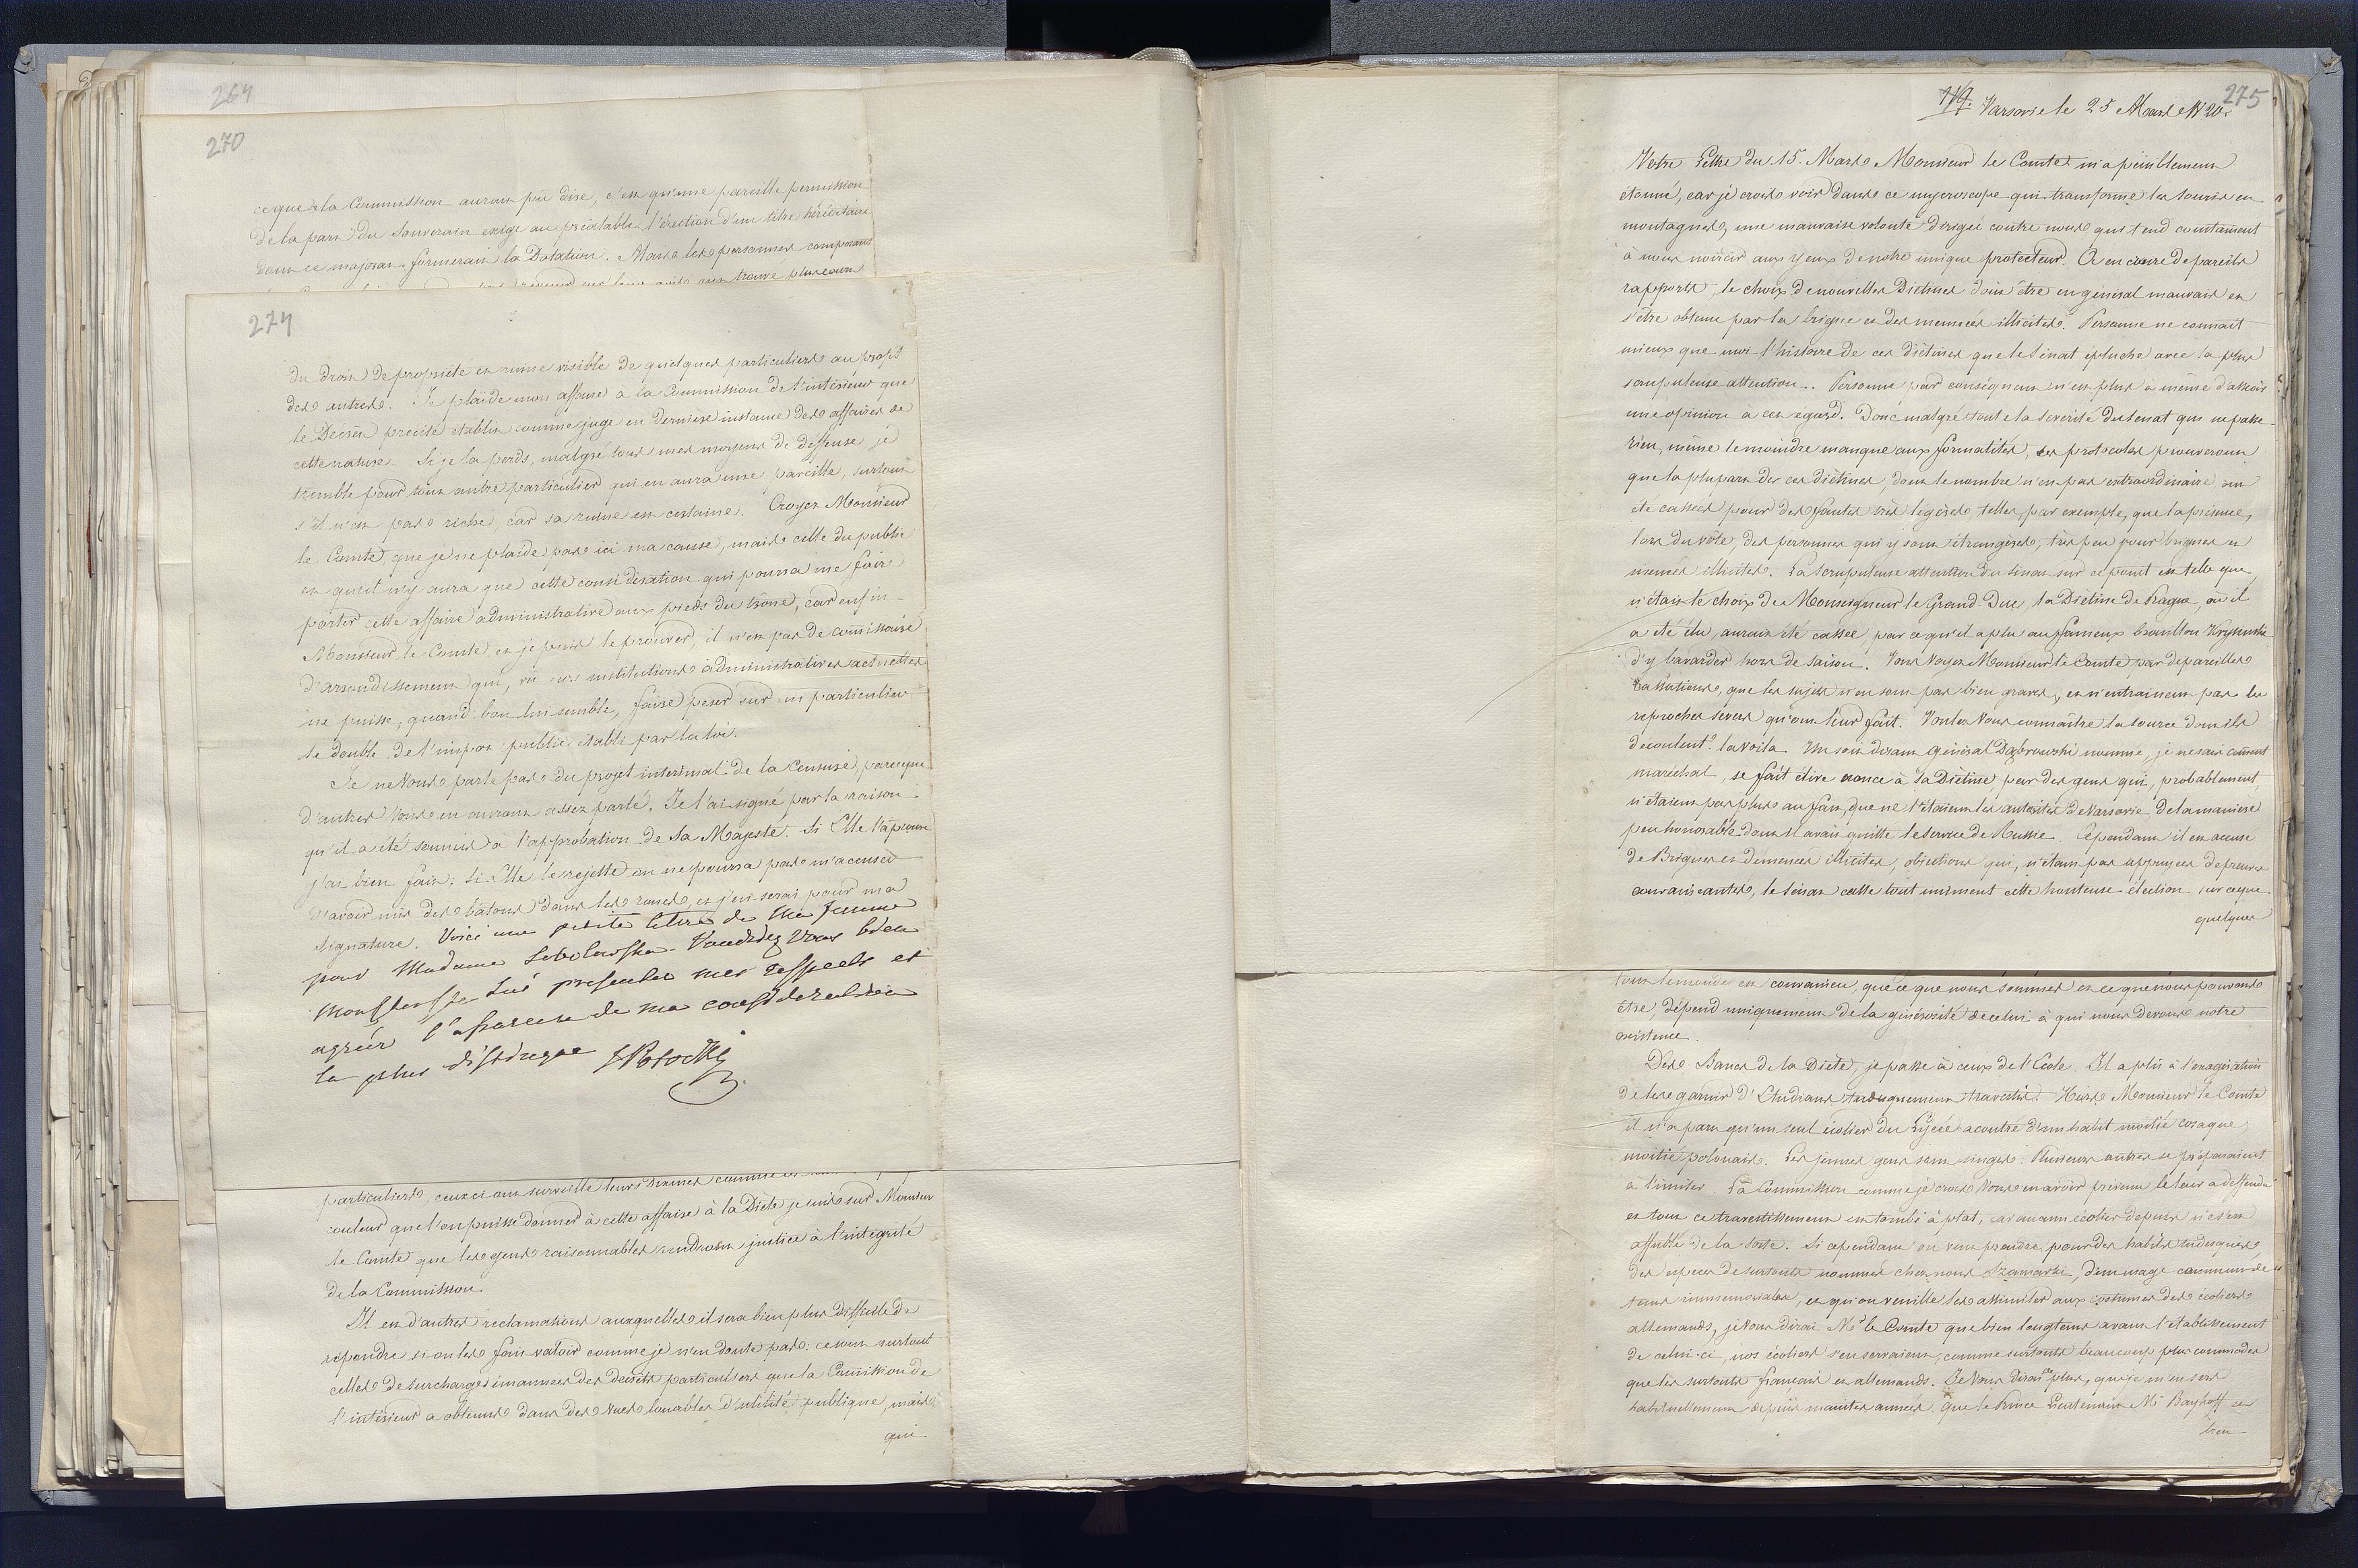 264
270
ce que la Commission auroit pû dire, c'est qu'une pareille permission
de la part du Souverain exige au préalable l'érection d'un titre héréditaire
dont ce majorat formerait la Dotation. Mais les personnes composant
274
du droit de propriété et ruine visible de quelques particuliers au profit
des autres. Je plaide mon affaire à la Commission de l'intérieur que
le Décret précité établit comme juge en dernière instance des affaires de
cette nature. Si je la perds, malgré tous mes moyens de deffense, je
tremble pour tout autre particulier qui en aura une pareille, surtout
s'il n'est pas riche, car sa ruine est certaine. Croyez Monsieur
le Comte, que je ne plaide pas ici ma cause, mais celle du public
et qu'il n'y aura que cette considération qui pourra me faire
porter cette affaire administrative aux pieds du trône, car enfin
Monsieur le Comte et je puis le prouver, il n'est pas de commissaire
d'arrondissement qui, vû nos institutions administratives actuelles
ne puisse, quand bon lui semble, faire peser sur un particulier
le double de l'impot public établi par la loi.
Je ne Vous parle pas du projet interimal de la Censure, parceque
d'autres Vous en auront assez parlé. Je l'ai signé par la raison
qu'il a été soumis à l'approbation de Sa Majesté. Si Elle l'approuve
j'ai bien fait; si Elle le rejette on ne pourra pas m'accuser
d'avoir mis des bâtons dans les roues, et j'en serai pour ma
signature. Voici une petite lettre de Ma femme
pour Madame Sobolewska. Voudrez Vous bien
Monsieur lui presenter mes respects et
agréer l'assurance de ma consideration
la plus distinguée SPotocki
particuliers, ceux ci ont surveillé leurs
couleur que l'on puisse donner à cette affaire à la Diète je suis sur Monsieur
le Comte que les gens raisonnables rendront justice à l'intégrité
de la Commission.
Il est d'autres reclamations auxquelles il sera bien plus difficile de
répondre si on les fait valoir comme je n'en doute pas: ce sont surtout
celles de surcharges émannées des décrets particuliers que la Commission de
l'intérieur a obtenus dans des vues louables d'utilité publique, mais
qui
275
119. Varsovie le 25 Mars 1820.
Votre Lettre du 15. Mars Monsieur le Comte m'a péniblement
étonné, car je crois voir dans ce mycroscope qui transforme les souris en
montagnes, une mauvaise volonté dirigée contre nous qui tend constament
à nous noircir aux yeux de notre unique protecteur. A en croire de pareils
rapports, le choix de nouvelles Diétines doit être en général mauvais et
s'être obtenu par la brigue et des menées illicites. Personne ne connait
mieux que moi l'histoire de ces diétines que le Sénat épluche avec la plus
scrupuleuse attention. Personne par conséquent n'est plus à même d'assoir
une opinion à cet egard. Donc malgré toute la severité du Senat qui ne passe
rien, même le moindre manque aux formalités, ses protocoles prouveront
que la plupart des ces diétines, dont le nombre n'est pas extraordinaire, ont
été cassées pour des fautes très legères telles, par exemple, que la présence,
lors du vôte, des personnes qui y sont étrangères; très peu pour brigues et
menées illicites. La scrupuleuse attention du Sénat sur ce point est telle que
n'était le choix de Monseigneur le Grand-Duc, la Diétine de Praga, où il
a été élu, aurait été cassée, par ce qu'il a plu au fameux brouillon Krysinski
d'y bavarder hors de saison. Vous voyez Monsieur le Comte par de pareilles
cassations, que les sujets n'en sont pas bien graves, et n'entrainent pas les
reproches severes qu'on leur fait. Voulez Vous connaître la source dont ils
decoulent? la voila. Un soit disant Général Dąbrowski nommé, je ne sais coment
maréchal, se fait élire nonce à sa Diétine par des gens qui, probablement,
n'étaient pas plus au fait, que ne l'étaient les autorités de Varsovie de la manière
peu honorable dont il avait quitté le service de Russie. Cependant il est accusé
de Brigues et de menées illicites, objections qui, n'étant pas appuyées de preuves
convaincantes, le Sénat casse tout uniment cette honteuse élection sur ce que
quelques
tout le monde est convaincu, que ce que nous sommes et ce que nous pouvons
être, dépend uniquement de la générosité de celui à qui nous devons notre
existence.
Des Bancs de la Diète, je passe à ceux de l'Ecole. Il a plû à l'exagération
de les garnir d'Etudians tudesquement travestis. Hors Monsieur le Comte
il n'a paru qu'un seul écolier du Lycée acoutré d'un habit moitié cosaque
moitié polonais. Les jeunes gens sont singes: Plusieurs autres se préparaient
à l'imiter. La Commission comme je crois Vous en avoir prévenu le leur a deffendu
et tout ce travestissement est tombé à plat, car aucun écolier depuis n'est
affublé de la sorte. Si cependant on veut prendre pour des habits tudesques,
des especes de surtouts nommés chez nous Szamarki, d'un usage commun de
tems immemoriales, et qu'on veuille les assimiler aux costumes des écoliers
allemands, je Vous dirai Mr le Comte que bien longtems avant l'établissement
de celui-ci, nos écoliers s'en servaient, comme surtouts beaucoup plus commodes
que les surtouts français et allemands. Je Vous dirai plus, que je m'en sers
habituellement depuis maintes années que le Prince Lieutenant Mr Baykoff et
bien